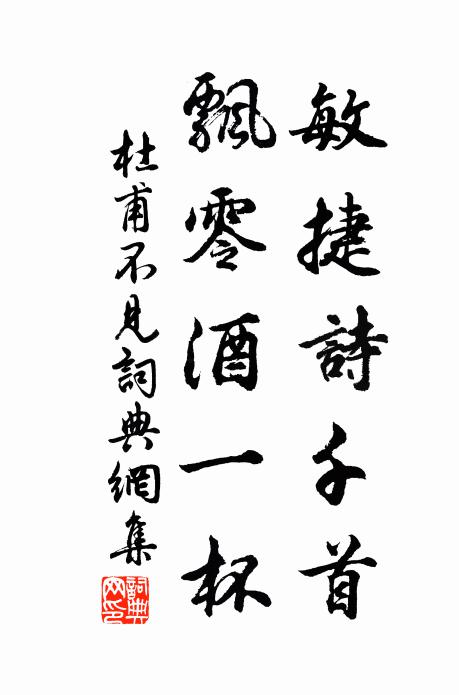 敏捷詩千首
飄零酒一杯
杜甫不見詞典網集
詞典網印